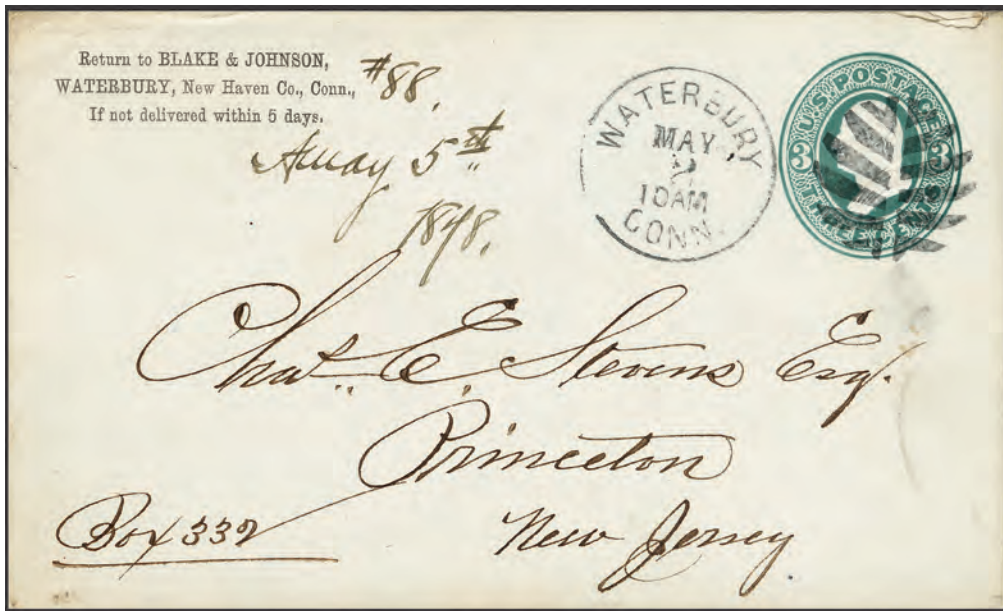 Return to BLAKE & JOHNSON,
WATERBURY, New Haven Co., Conn.,
If not delivered within 5 days.
#88.
May 5th
WATERBURY
MAY
2
10AM
CONN.
U.S. POSTAGE
3 3
THREE CENTS
Chas. E. Stevens Esq.
Princeton
Box 332
New Jersey